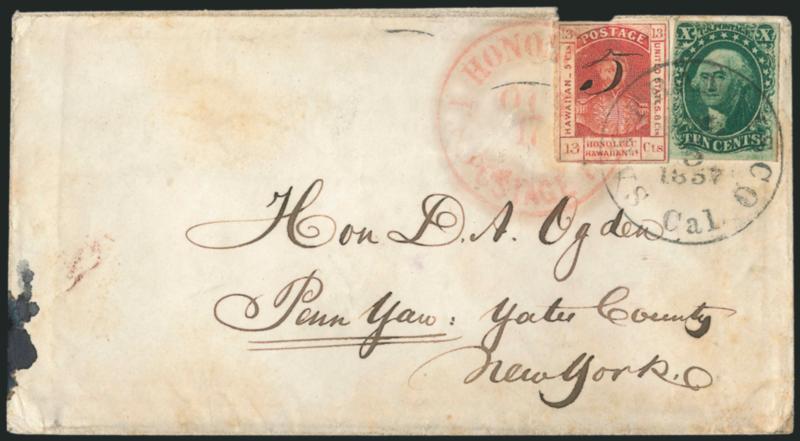 HONOLULU
POSTAGE
13 POSTAGE 13
HAWAIIAN _ 5 Cts
UNITED STATES. 8 Cts
5
13 HONOLULU Cts
HAWAIIAN Is.
X TEN CENTS X
SAN
3
1857
Cal.
CO
Hon D. A. Ogden
Penn Yan: Yates County
New York.